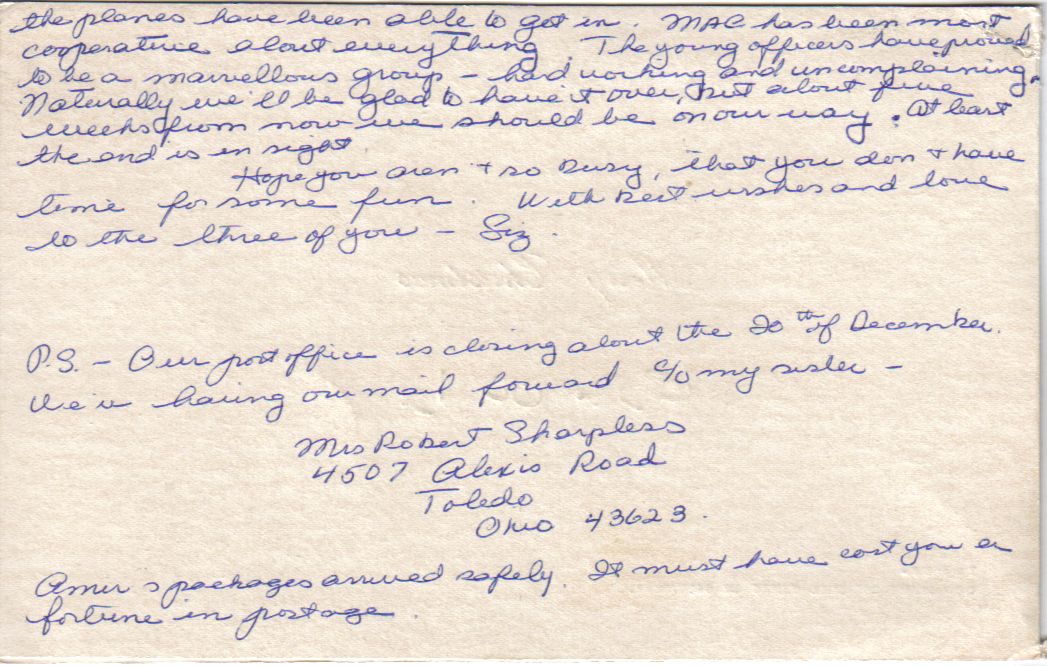 the planes have been able to get in. MAC has been most
cooperative about everything. The young officers have proved
to be a marvellous group – hard working and uncomplaining.
Naturally we'll be glad to have it over, but about five
weeks from now we should be on our way. At least
the end is in sight.
Hope you aren't so busy, that you don't have
time for some fun. With best wishes and love
to the three of you – Siz.
P.S. – Our post office is closing about the 20th of December.
We're having our mail forward c/o my sister –
Mrs Robert Sharpless
4507 Alexis Road
Toledo
Ohio 43623.
packages arrived safely. It must have cost you a
fortune in postage.